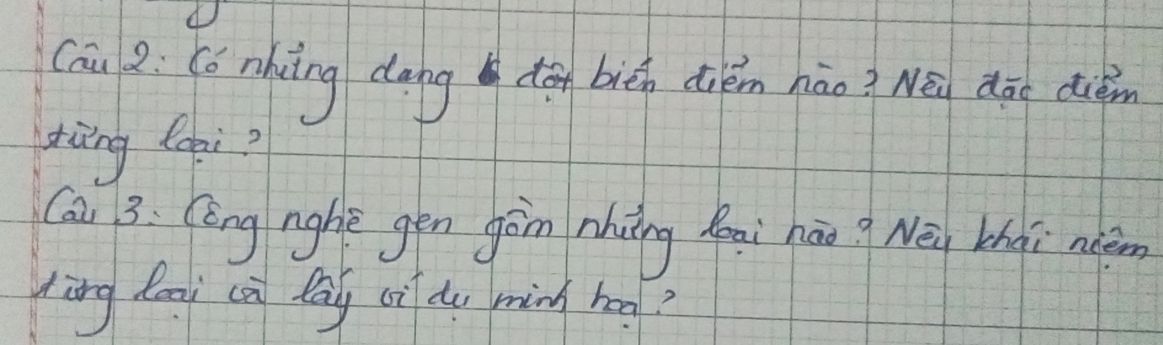 Câu 2: Có những dạng đột biến điểm nào? Nêu đặc điểm
từng loại?
Câu 3: Công nghệ gen gồm những loại nào? Nêu khái niệm
từng loại và lấy ví dụ minh hoạ?